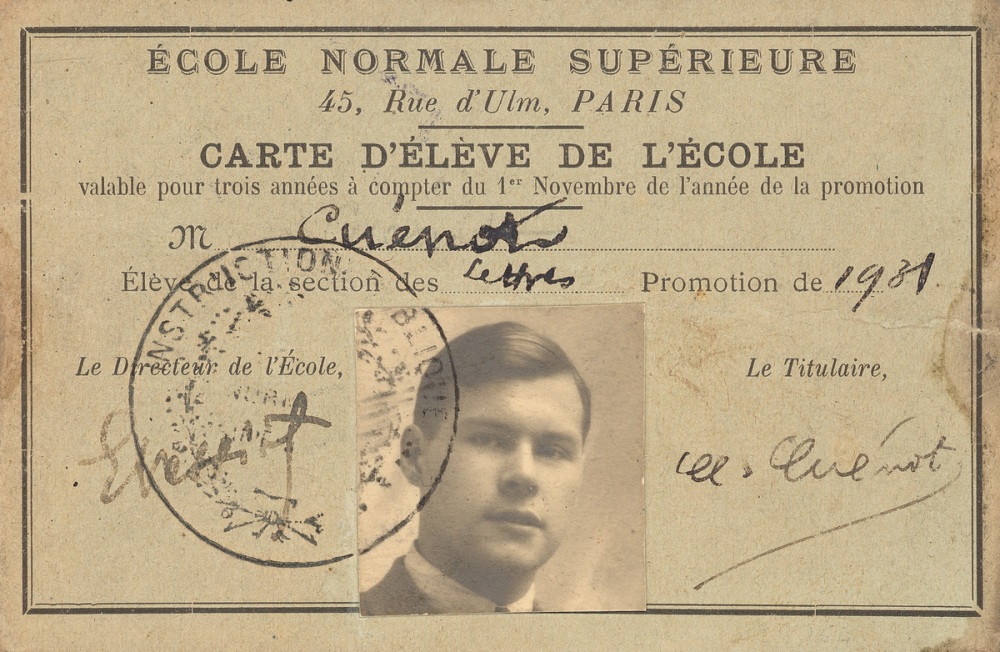 ÉCOLE NORMALE SUPÉRIEURE
45, Rue d'Ulm, PARIS
CARTE D'ÉLÈVE DE L'ÉCOLE
valable pour trois années à compter du 1er Novembre de l'année de la promotion
M Cuénot
Élève de la section des Lettres Promotion de 1931
INSTRUCTION PUBLIQUE
Le Directeur de l'École, Le Titulaire,
Cuénot